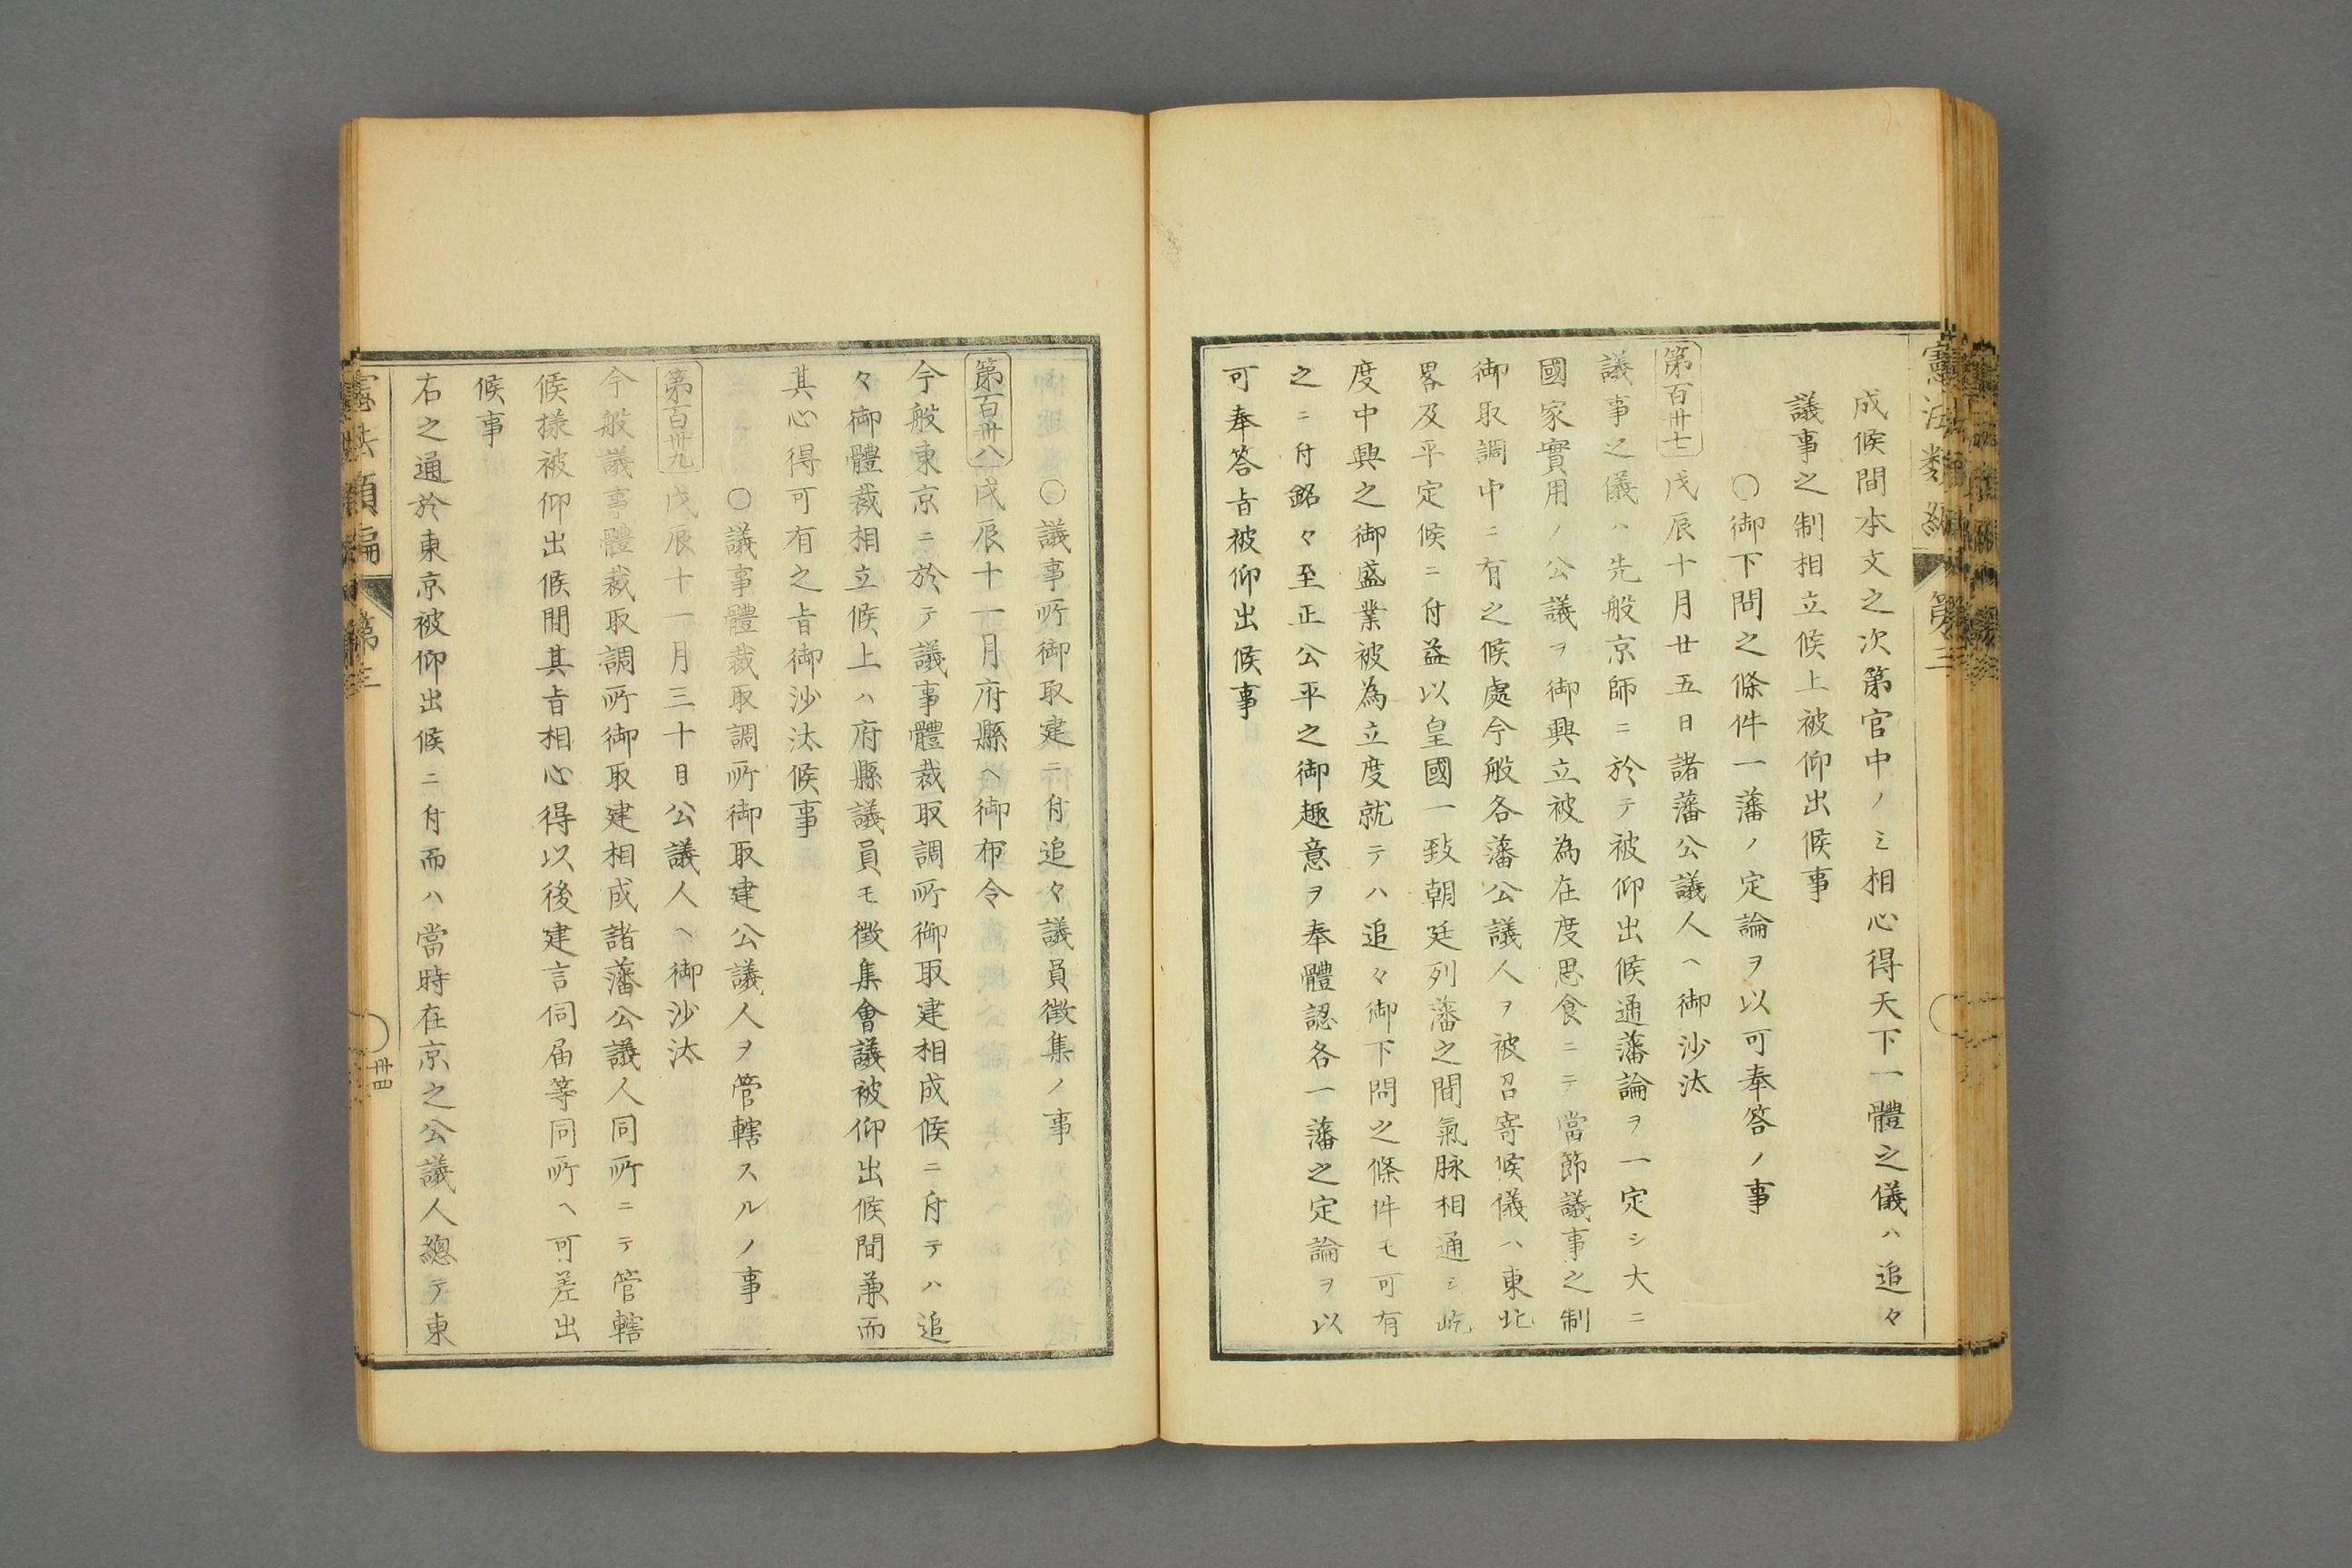 憲法類編 第三
成候間本文之次第官中ノミ相心得天下一體之儀ハ追々
議事之制相立候上被仰出候事
〇御下問之條件一藩ノ定論ヲ以可奉答ノ事
第百卅七 戊辰十月廿五日諸藩公議人ヘ御沙汰
議事之儀ハ先般京師ニ於テ被仰出候通藩論ヲ一定シ大ニ
國家實用ノ公議ヲ御興立被為在度思食ニテ當節議事之制
御取調中ニ有之候處今般各藩公議人ヲ被召寄候儀ハ東北
畧及平定候ニ付益以皇國一致朝廷列藩之間氣脉相通シ屹
度中興之御盛業被為立度就テハ追々御下問之條件モ可有
之ニ付銘々至正公平之御趣意ヲ奉體認各一藩之定論ヲ以
可奉答旨被仰出候事
〇議事所御取建ニ付追々議員徴集ノ事
第百卅八 戊辰十一月府縣ヘ御布令
今般東京ニ於テ議事體裁取調所御取建相成候ニ付テハ追
々御體裁相立候上ハ府縣議員モ徴集會議被仰出候間兼而
其心得可有之旨御沙汰候事
〇議事體裁取調所御取建公議人ヲ管轄スルノ事
第百卅九 戊辰十一月三十日公議人ヘ御沙汰
今般議事體裁取調所御取建相成諸藩公議人同所ニテ管轄
候樣被仰出候間其旨相心得以後建言伺届等同所ヘ可差出
候事
右之通於東京被仰出候ニ付而ハ當時在京之公議人總テ東
憲法類編 第三 卅四